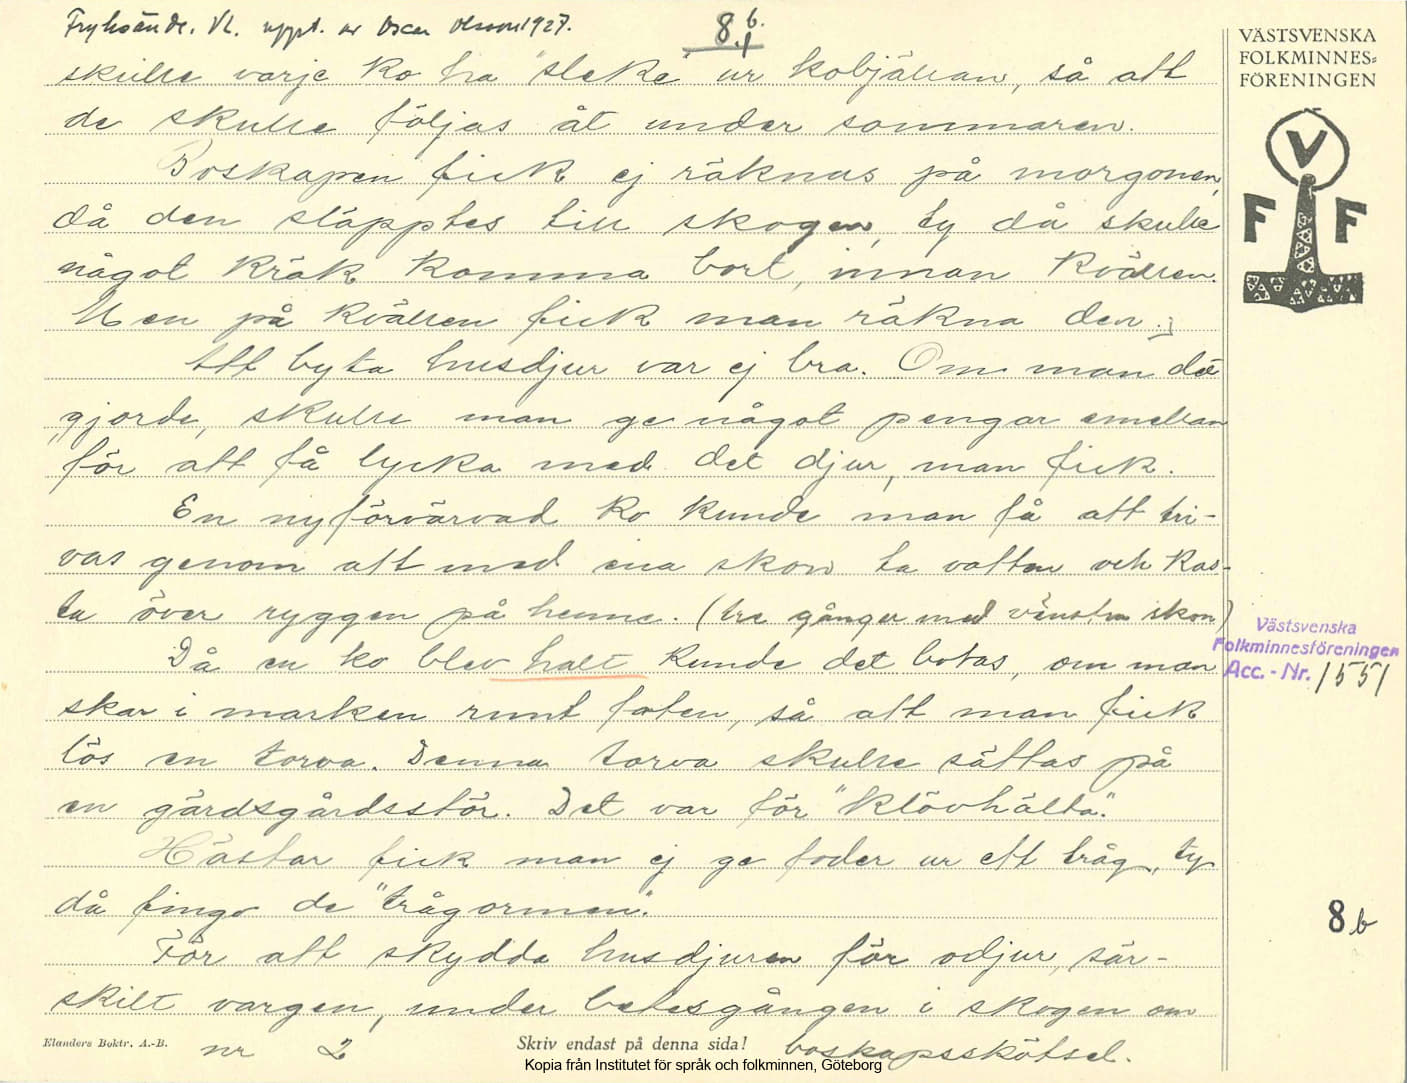 Fryksände. Vl. uppt. av Oscar Olsson 1927.
8.b.
1
VÄSTSVENSKA
FOLKMINNES=
FÖRENINGEN
V
F F
skulle varje ko ha "sleke" ur kobjällran, så att
de skulle följas åt under sommaren.
Boskapen fick ej räknas på morgonen,
då den släpptes till skogen, ty då skulle
något kräk komma bort, innan kvällen.
Men på kvällen fick man räkna den.]
Att byta husdjur var ej bra. Om man då
gjorde, skulle man ge något pengar emellan
för att få lycka med det djur, man fick.
En nyförvärvad ko kunde man få att tri-
vas genom att med ena skon ta vatten och kas-
ta över ryggen på henne. (tre gånger med vänstra skon)
Då en ko blev halt kunde det botas, om man
skar i marken runt foten, så att man fick
lös en torva. Denna torva skulle sättas på
en gärdsgårdsstör. Det var för "klövhälta".
Hästar fick man ej ge foder ur ett tråg, ty
då fingo de "trågormen".
För att skydda husdjuren för odjur, sär-
skilt vargen, under betesgången i skogen om
Västsvenska
Folkminnesföreningen
Acc. - Nr. 1551
8 b
Elanders Boktr. A.-B.
nr 2
Skriv endast på denna sida!
boskapsskötsel.
Kopia från Institutet för språk och folkminnen, Göteborg